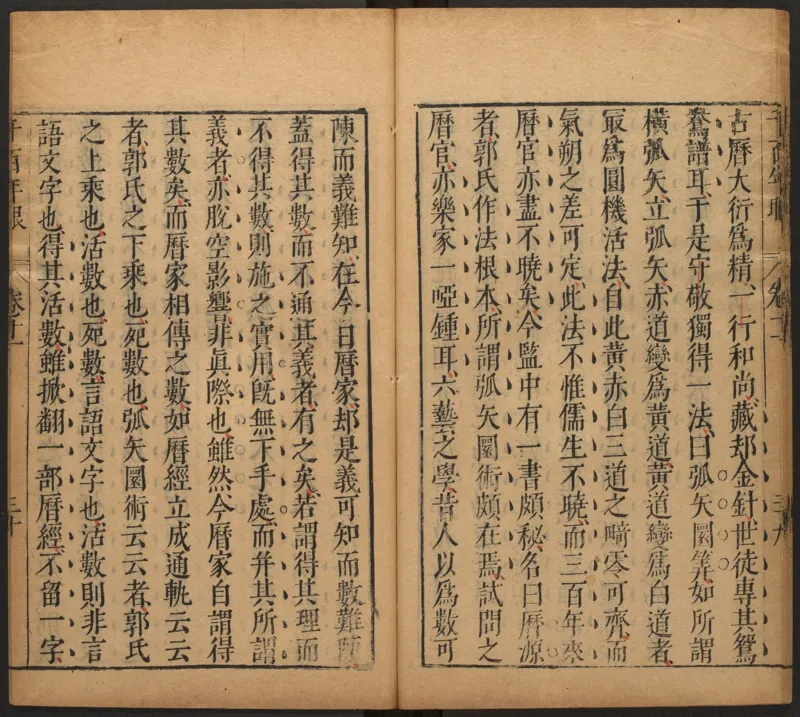 古曆大衍爲精一行和尚藏却金針世徒專其鴛
鴦譜耳于是守敬獨得一法曰弧矢圜筭如所謂
橫弧矢立弧矢赤道變爲黃道黃道變爲白道者
最爲圓機活法自此黃赤白三道之畸零可齊而
氣朔之差可定此法不惟儒生不曉而三百年來
曆官亦盡不曉矣今監中有一書頗秘名曰曆源
者郭氏作法根本所謂弧矢圜術頗在焉試問之
曆官亦樂家一啞鍾耳六藝之學昔人以爲數可
陳而義難知在今日曆家却是義可知而數難陳
蓋得其數而不通其義者有之矣若謂得其理而
不得其數則施之實用旣無下手處而幷其所謂
義者亦脫空影響非眞際也雖然今曆家自謂得
其數矣而曆家相傳之數如曆經立成通軌云云
者郭氏之下乘也死數也弧矢圜術云云者郭氏
之上乘也活數也死數言語文字也活數則非言
語文字也得其活數雖掀翻一部曆經不留一字
卷十一
三十